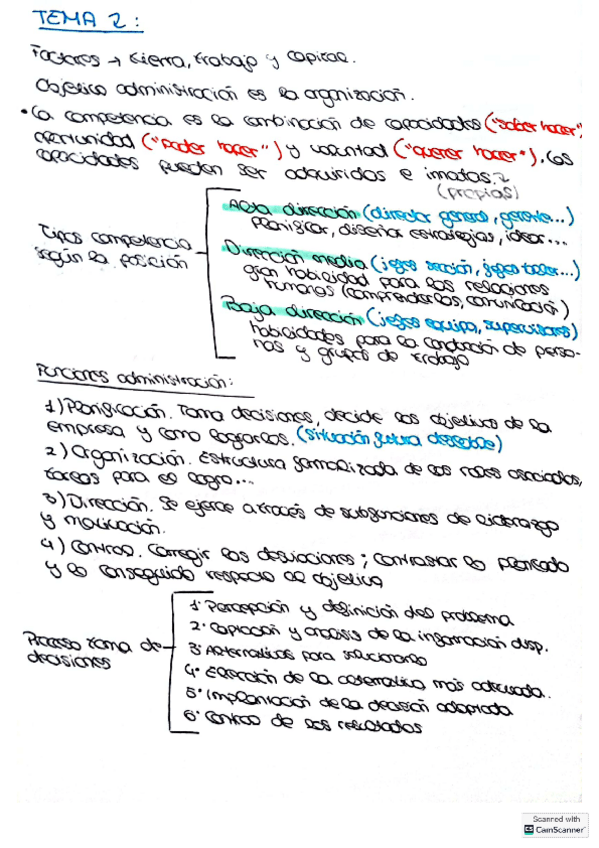 TEMA 2:
Factores → tierra, trabajo y capital.
Objetivo administración es la organización.
• La competencia es la combinación de capacidades ("saber hacer",
oportunidad ("poder hacer") y voluntad ("querer hacer"). Las
capacidades pueden ser adquiridas e innatas.
(propias)
Tipos competencia
según la posición
Alta dirección (director general, gerente...)
Planificar, diseñar estrategias, idear...
Dirección media (jefes sección, jefes taller...)
gran habilidad para las relaciones
humanas (comprenderlas, comunicación)
Baja dirección (jefes equipo, supervisores)
habilidades para la conducción de perso-
nas y grupos de trabajo
Funciones administración:
1) Planificación. Toma decisiones, decide los objetivos de la
empresa y como lograrlos. (situación futura deseable)
2) Organización. Estructura formalizada de los roles asociados,
tareas para el logro...
3) Dirección. Se ejerce a través de subfunciones de liderazgo
y motivación.
4) Control. Corregir las desviaciones; contrastar lo planeado
y lo conseguido respecto al objetivo
Proceso toma de
decisiones
1º Percepción y definición del problema
2º Captación y análisis de la información disp.
3º Alternativas para solucionarlo
4º Elección de la alternativa más adecuada.
5º Implantación de la decisión adoptada
6º Control de los resultados
Scanned with
CamScanner